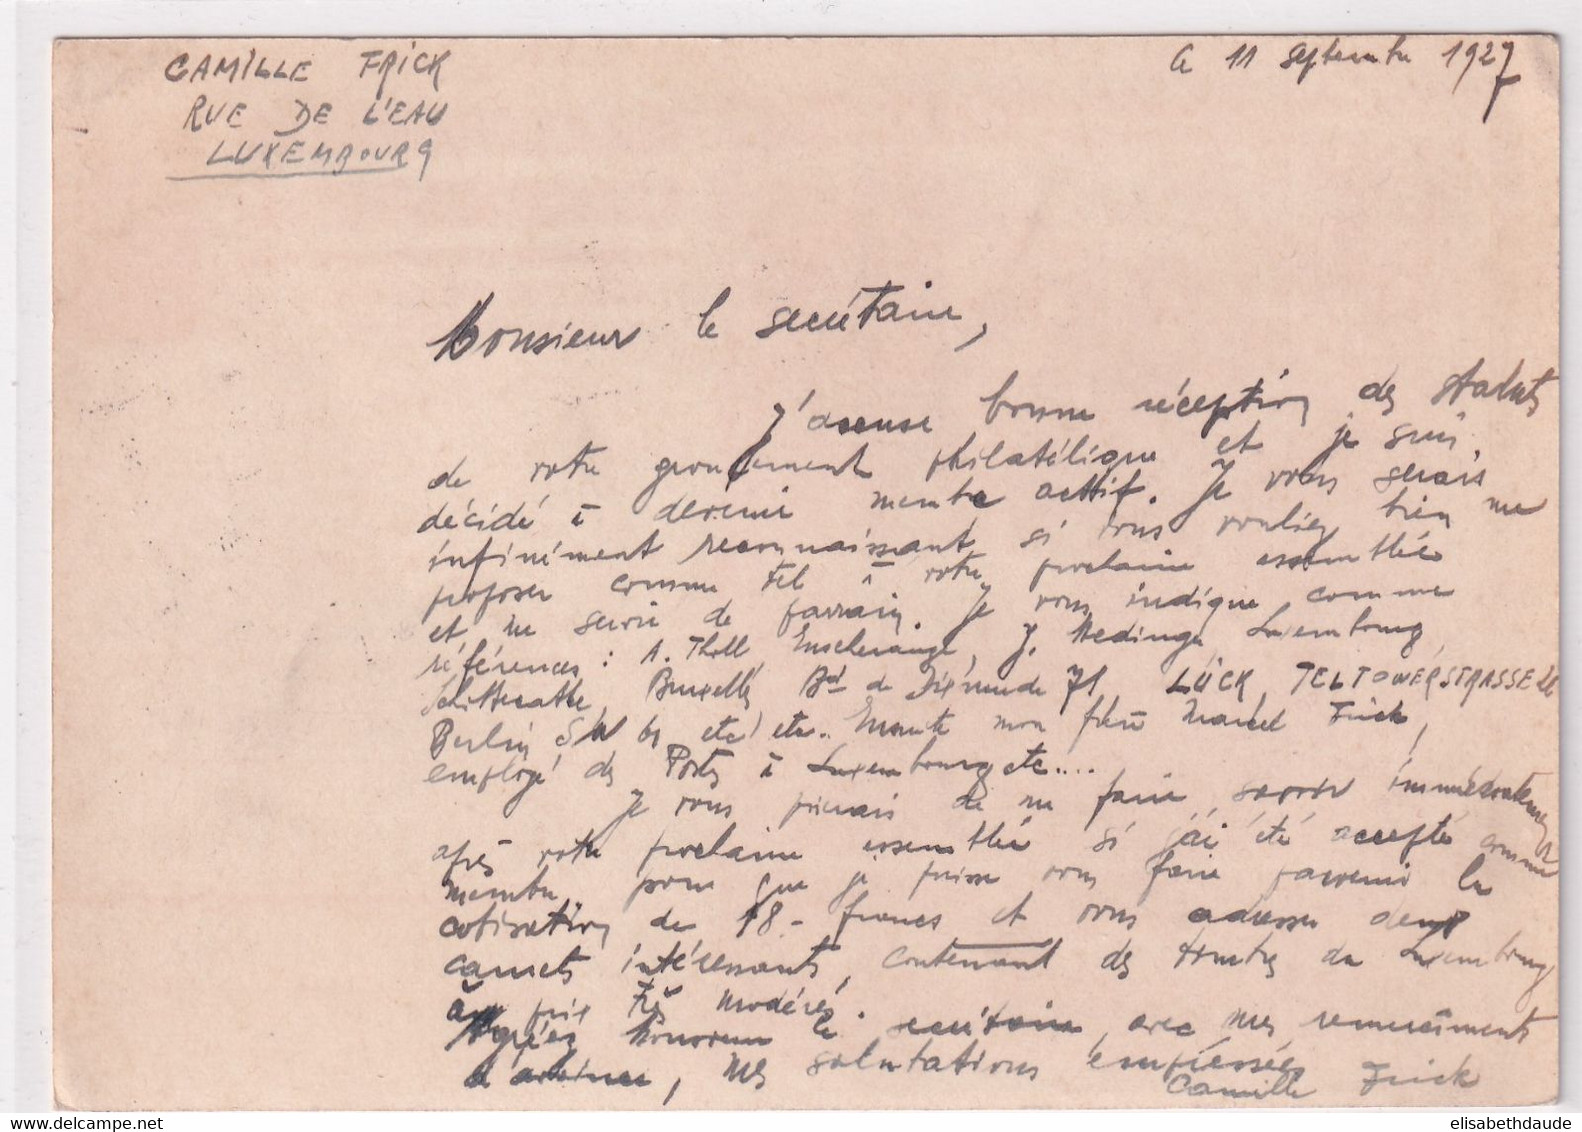 CAMILLE FRICK
RUE DE L'EAU
LUXEMBOURG
le 11 septembre 1927
Monsieur le secrétaire,
J'accuse bonne réception des statuts
de votre groupement philatélique et je suis
décidé à devenir membre actif. Je vous serais
infiniment reconnaissant si vous vouliez bien me
proposer comme tel à votre prochaine assemblée
et me servir de parrain. Je vous indique comme
références : A. Tholl, J. Medinger, Luxembourg,
Bruxelles, Bd de Dixmude 71, LÜCK, TELTOWERSTRASSE
Berlin SW 61 etc etc.. Ensuite mon frère Marcel Frick,
employé des Postes à Luxembourg etc....
Je vous prierais de me faire savoir immédiatement
après votre prochaine assemblée si j'ai été accepté comme
membre, pour que je puisse vous faire parvenir la
cotisation de 18.- francs et vous adresser deux
carnets intéressants, contenant des timbres du Luxembourg
à prix très modérés.
Agréez Monsieur le secrétaire, avec mes remerciements
d'avance, mes salutations empressées
Camille Frick
elisabethdaude